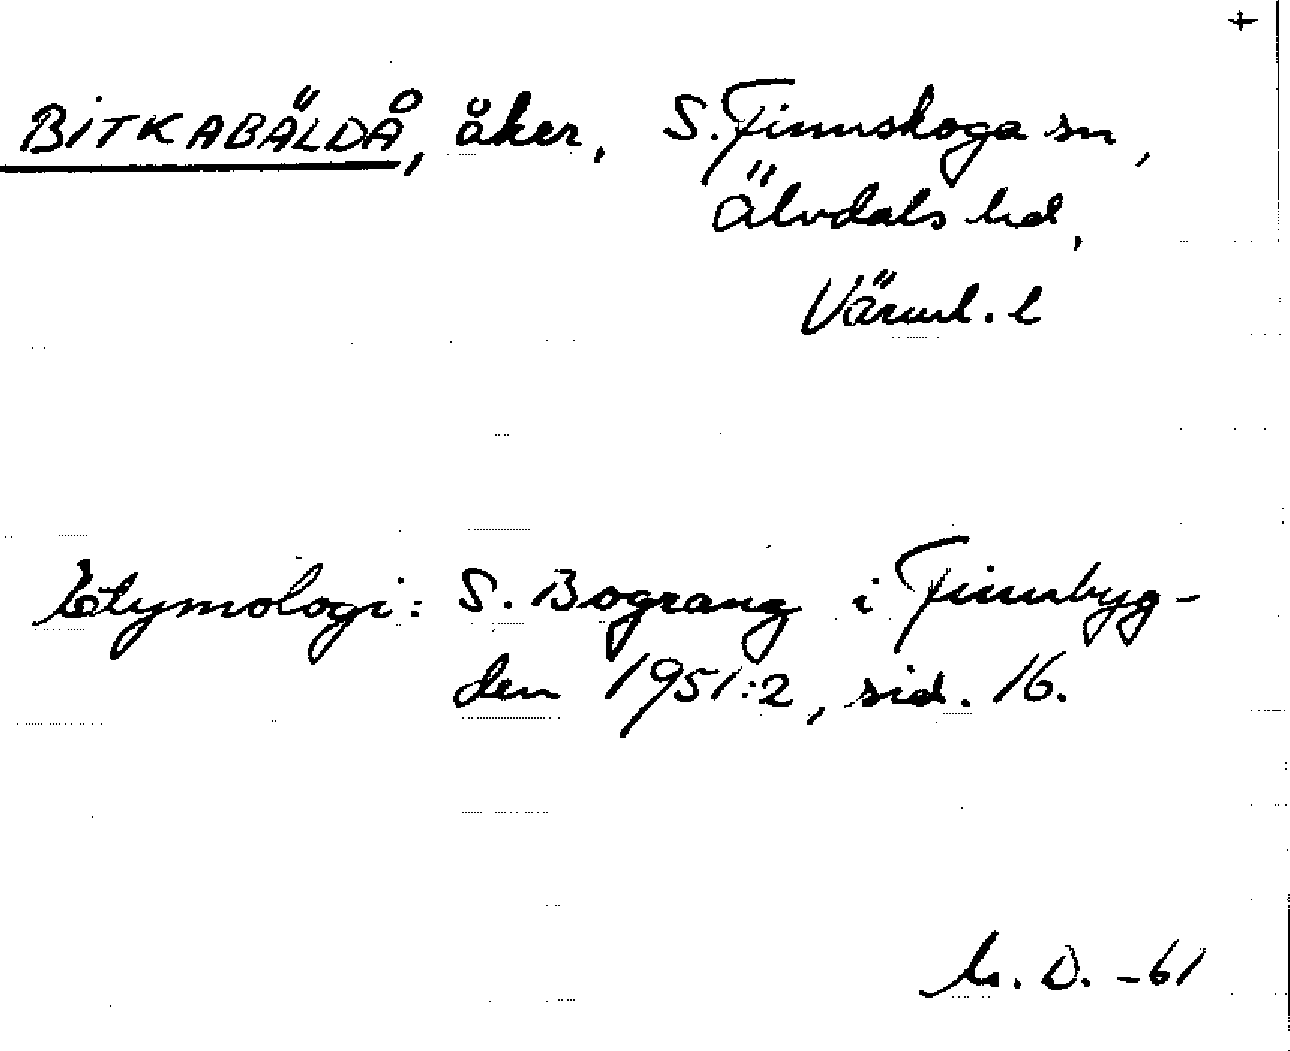 +
BITKABÄLDÅ, åker, S. Finnskoga sn,
Älvdals hd,
Värml. l
Etymologi: S. Bograng i Finnbyg-
den 1951:2, sid. 16.
D. -61